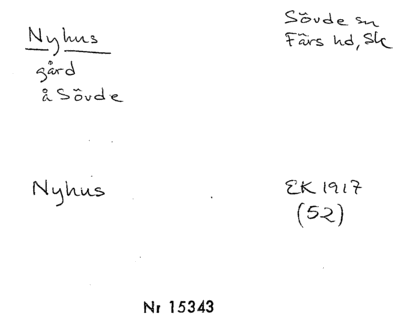 Nyhus
gård
å Sövde
Sövde sn
Färs hd, Sk
Nyhus
EK 1917
(52)
Nr 15343